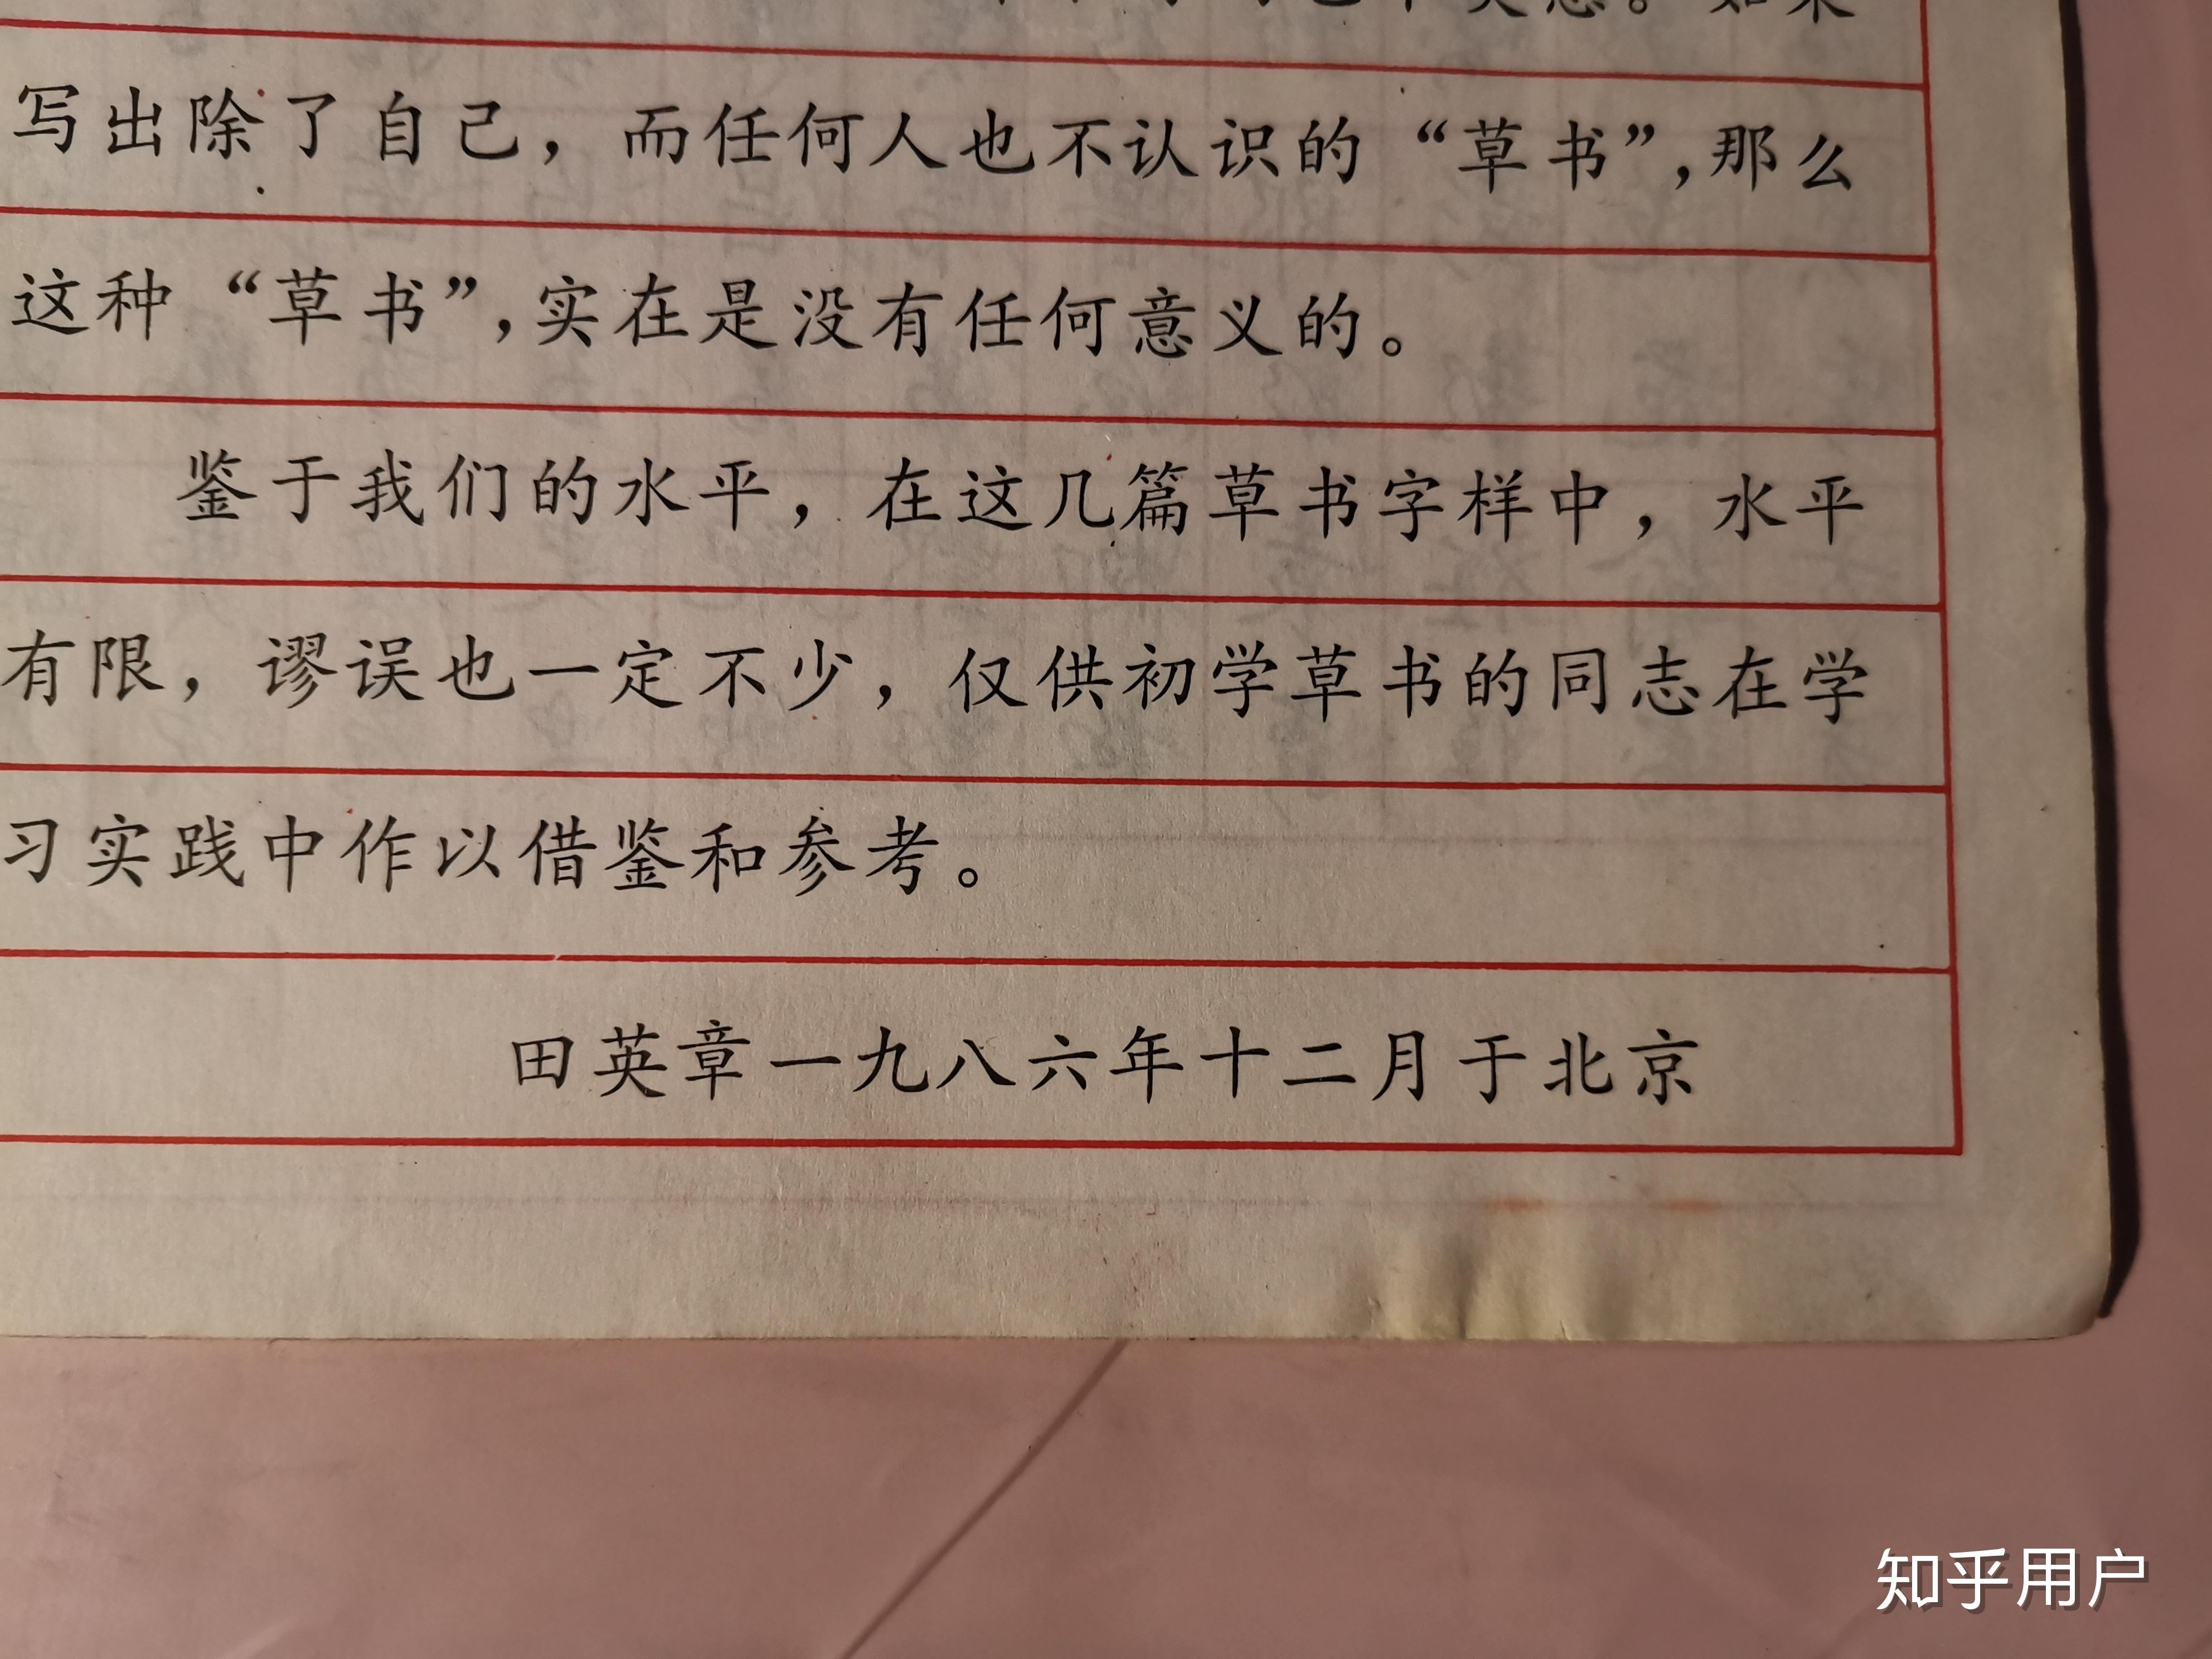 如果
写出除了自己，而任何人也不认识的“草书”，那么
这种“草书”，实在是没有任何意义的。
鉴于我们的水平，在这几篇草书字样中，水平
有限，谬误也一定不少，仅供初学草书的同志在学
习实践中作以借鉴和参考。
田英章一九八六年十二月于北京
知乎用户